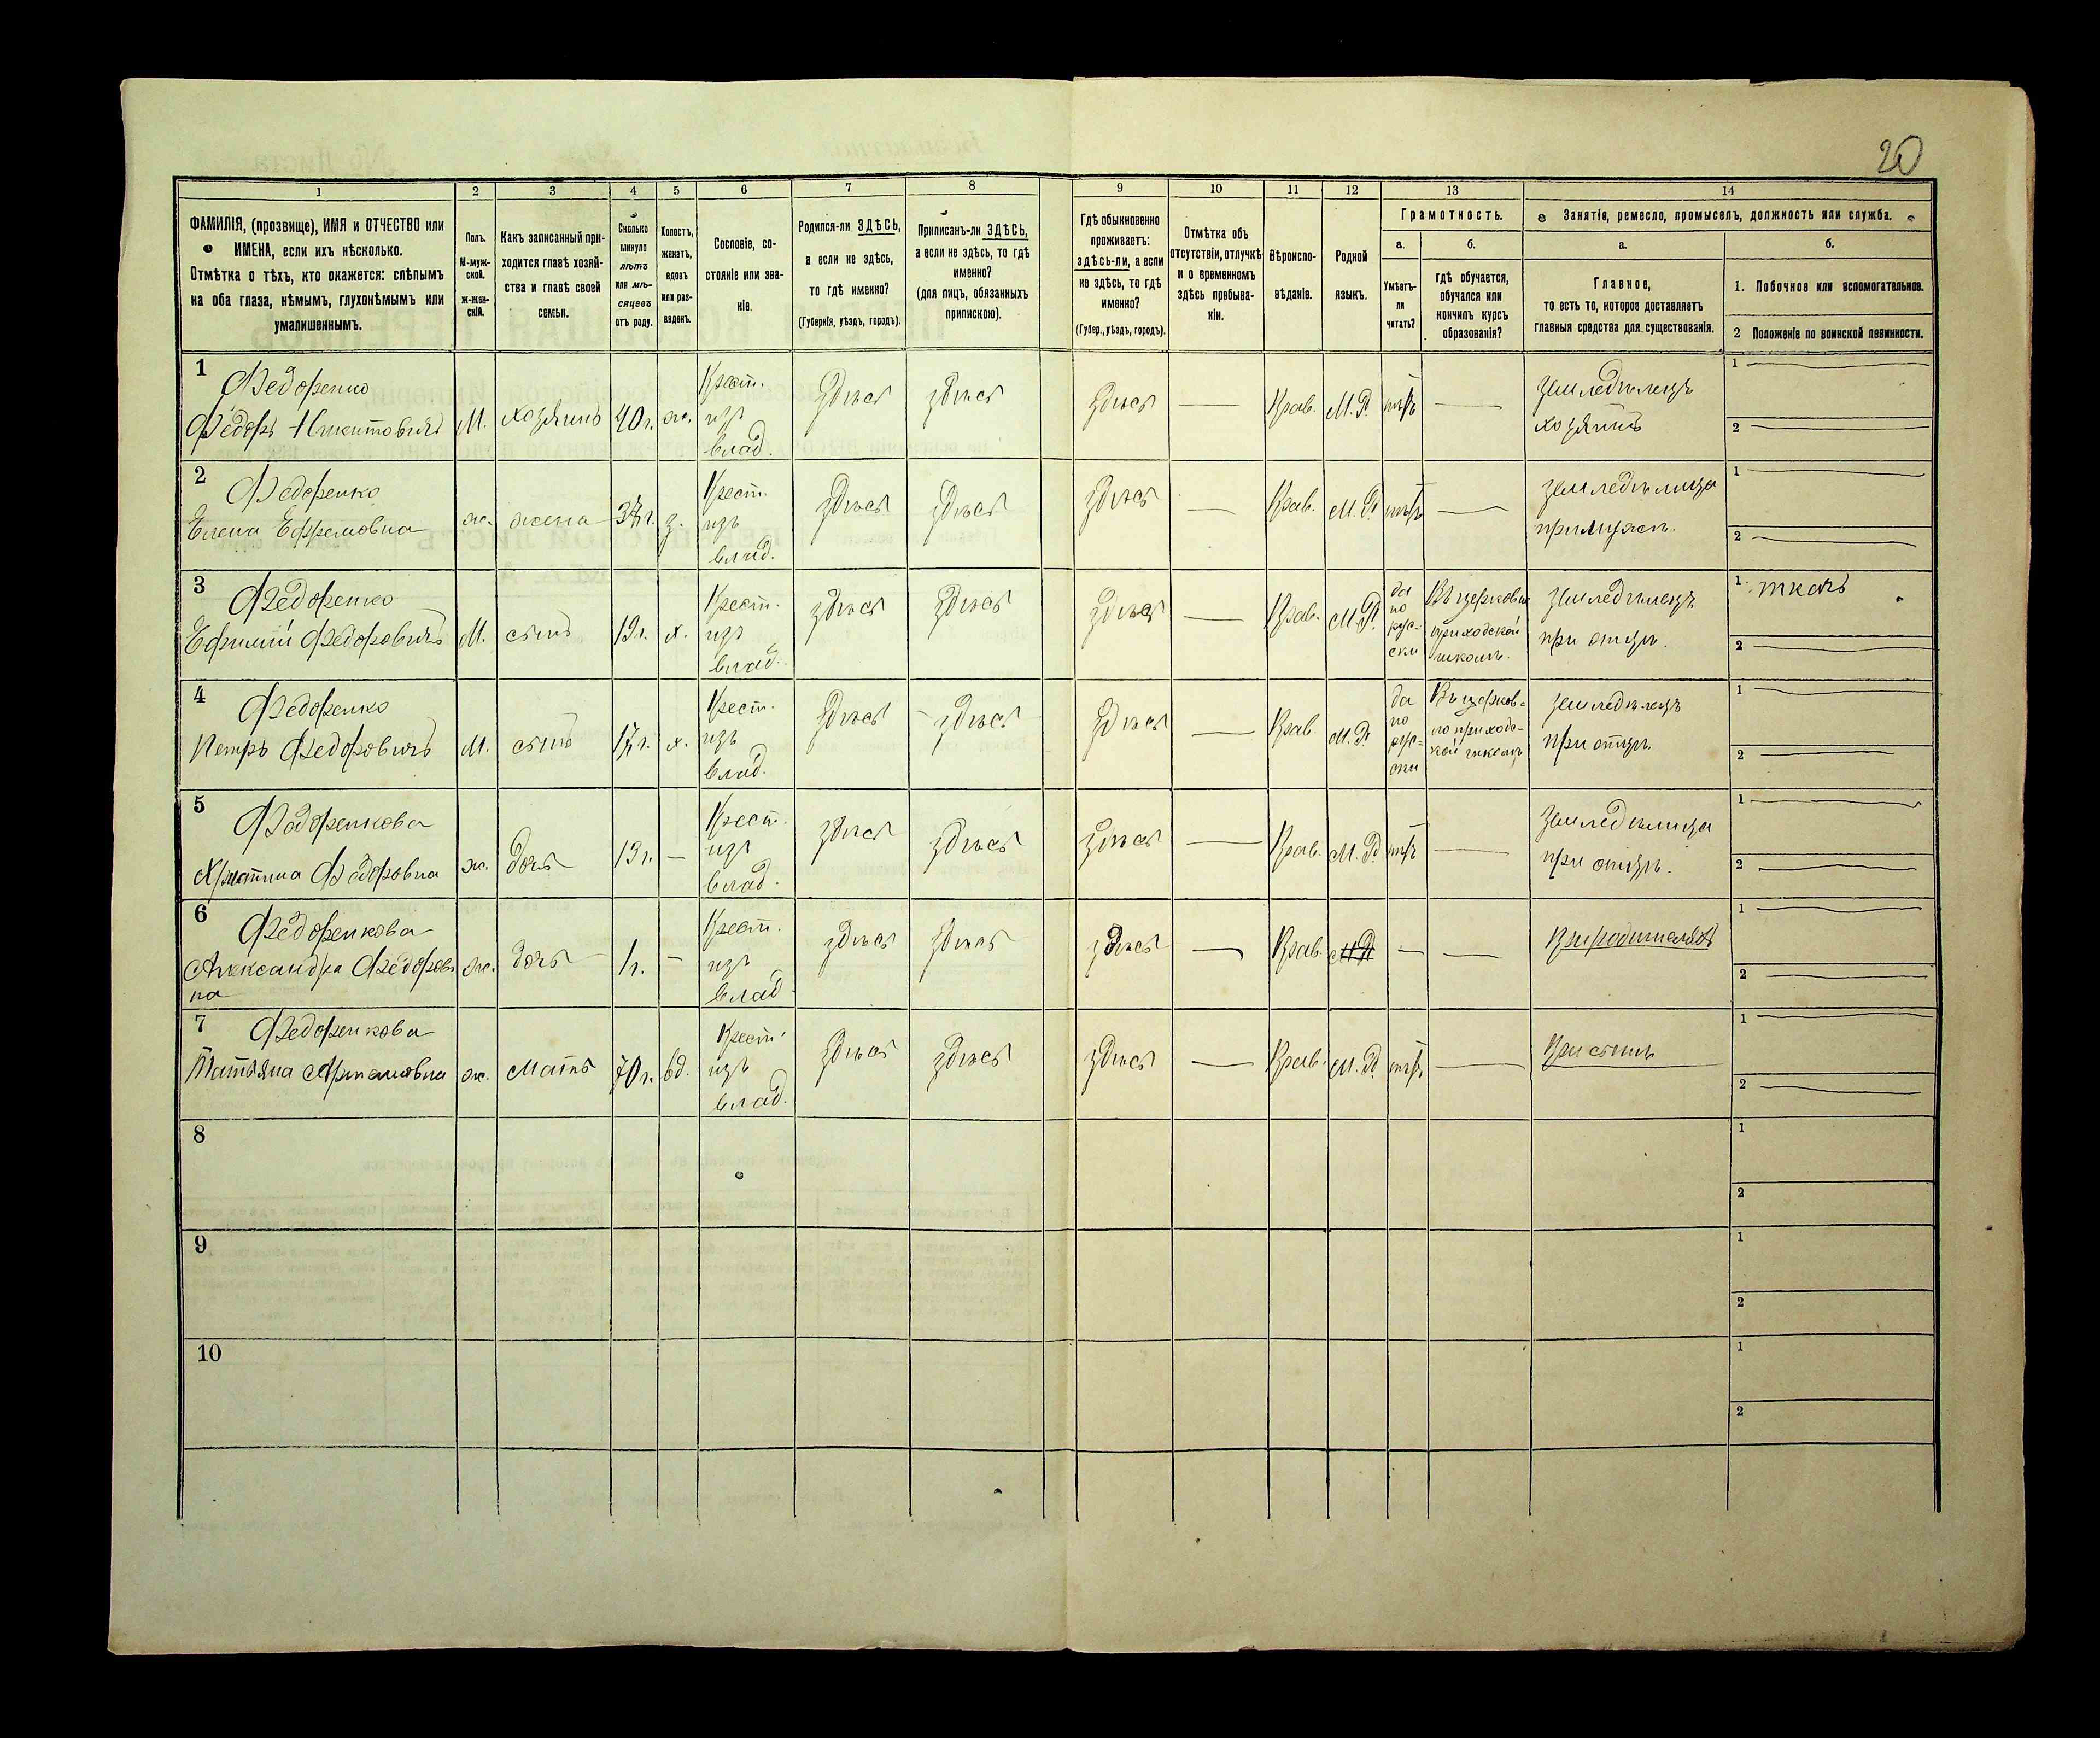 20
1
2
3
4
5
6
7
8
9
10
11
12
13
14
ФАМИЛІЯ, (прозвище), ИМЯ и ОТЧЕСТВО или
ИМЕНА, если ихъ нѣсколько.
Отмѣтка о тѣхъ, кто окажется: слѣпымъ
на оба глаза, нѣмымъ, глухонѣмымъ или
умалишеннымъ.
Полъ.
М-муж-
ской.
ж-жен-
скій.
Какъ записанный при-
ходится главѣ хозяй-
ства и главѣ своей
семьи.
Сколько
минуло
лѣтъ
или мѣ-
сяцевъ
отъ роду.
Холостъ,
женатъ,
вдовъ
или раз-
веденъ.
Сословіе, со-
стояніе или зва-
ніе.
Родился-ли ЗДѢСЬ,
а если не здѣсь,
то гдѣ именно?
(Губернія, уѣздъ, городъ).
Приписанъ-ли ЗДѢСЬ,
а если не здѣсь, то гдѣ
именно?
(для лицъ, обязанныхъ
припискою).
Гдѣ обыкновенно
проживаетъ:
здѣсь-ли, а если
не здѣсь, то гдѣ
именно?
(Губер., уѣздъ, городъ).
Отмѣтка объ
отсутствіи, отлучкѣ
и о временномъ
здѣсь пребыва-
ніи.
Вѣроиспо-
вѣданіе.
Родной
языкъ.
Грамотность.
а.
Умѣетъ-
ли
читать?
б.
гдѣ обучается,
обучался или
кончилъ курсъ
образованія?
Занятіе, ремесло, промыселъ, должность или служба.
а.
Главное,
то есть то, которое доставляетъ
главныя средства для существованія.
б.
1. Побочное или вспомогательное.
2 Положеніе по воинской повинности.
1
Федоренко
Федоръ Никитовичъ
М.
хозяинъ
40 г.
ж.
Крест.
изъ
влад.
здѣсь
здѣсь
здѣсь
Прав.
М. Р.
нѣтъ
Земледѣлецъ
хозяинъ
1
2
2
Федоренко
Елена Ефремовна
ж.
жена
з.
Крест.
изъ
влад.
здѣсь
здѣсь
здѣсь
Прав.
М. Р.
нѣтъ
Земледѣлица
при мужѣ.
1
2
3
Федоренко
Ефимій Федоровичъ
М.
сынъ
19 г.
х.
Крест.
изъ
влад.
здѣсь
здѣсь
здѣсь
Прав.
М. Р.
да
по
рус-
ски
Въ церковно
приходской
школѣ.
Земледѣлецъ
при отцѣ.
1 ткачъ
2
4
Федоренко
Петръ Федоровичъ
М.
сынъ
17 г.
х.
Крест.
изъ
влад.
здѣсь
здѣсь
здѣсь
Прав.
М. Р.
да
по
рус-
ски
Въ церков-
но приходс-
кой школѣ
Земледѣлецъ
при отцѣ.
1
2
5
Федоренкова
Христина Федоровна
ж.
дочь
13 г.
Крест.
изъ
влад.
здѣсь
здѣсь
здѣсь
Прав.
М. Р.
нѣтъ
Земледѣлица
при отцѣ.
1
2
6
Федоренкова
Александра Федоров
на
ж.
дочь
1 г.
Крест.
изъ
влад.
здѣсь
здѣсь
здѣсь
Прав.
М Р
При родителяхъ
1
2
7
Федоренкова
Татьяна
ж.
Мать
70 г.
вд.
Крест.
изъ
влад.
здѣсь
здѣсь
здѣсь
Прав.
М. Р.
нѣтъ
При сынѣ
1
2
8
1
2
9
1
2
10
1
2